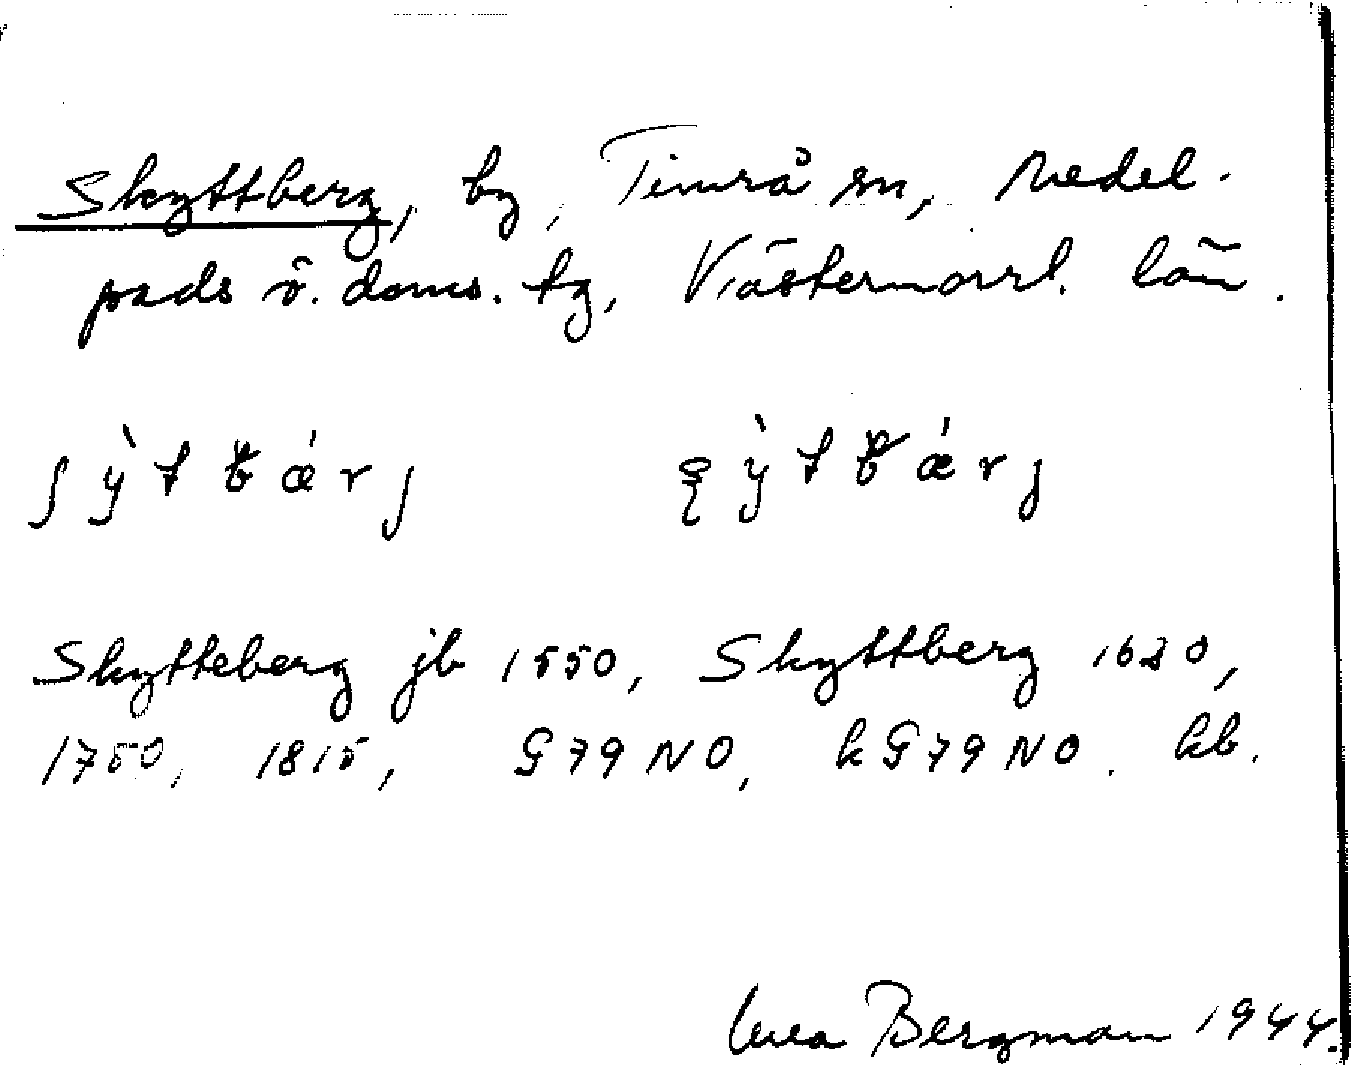 Skyttberg, by, Timrå sn, Medel-
pads ö. doms. tg, Västernorrl. län.
ʃy̋tbǽrj
Skytteberg jb 1550, Skyttberg 1620,
1750, 1815, G79NO, kG79NO. kb.
Bergman 1944.